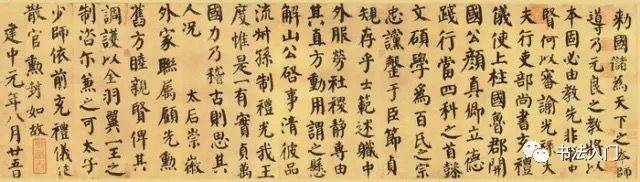 勅國儲為天下之本師
導乃元良之教將以
本固必由教先非求忠
賢何以審諭光祿大
夫行吏部尚書充禮
儀使上柱國魯郡開
國公顏真卿立德
踐行當四科之首懿
文碩學為百氏之宗
忠讜罄于臣節貞
規存乎士範述職中
外服勞社稷靜專由
其直方動用謂之懸
解山公啓事清彼品
流叔孫制禮光我王
度惟是一有實貞萬
國力乃稽古則思其
人況 太后崇徽
外家聯屬顧先勳
舊方睦親賢俾其
調護以全羽翼一王之
制咨爾兼之可太子
少師依前充禮儀使
散官勳封如故
建中元年八月廿五日
书法入门